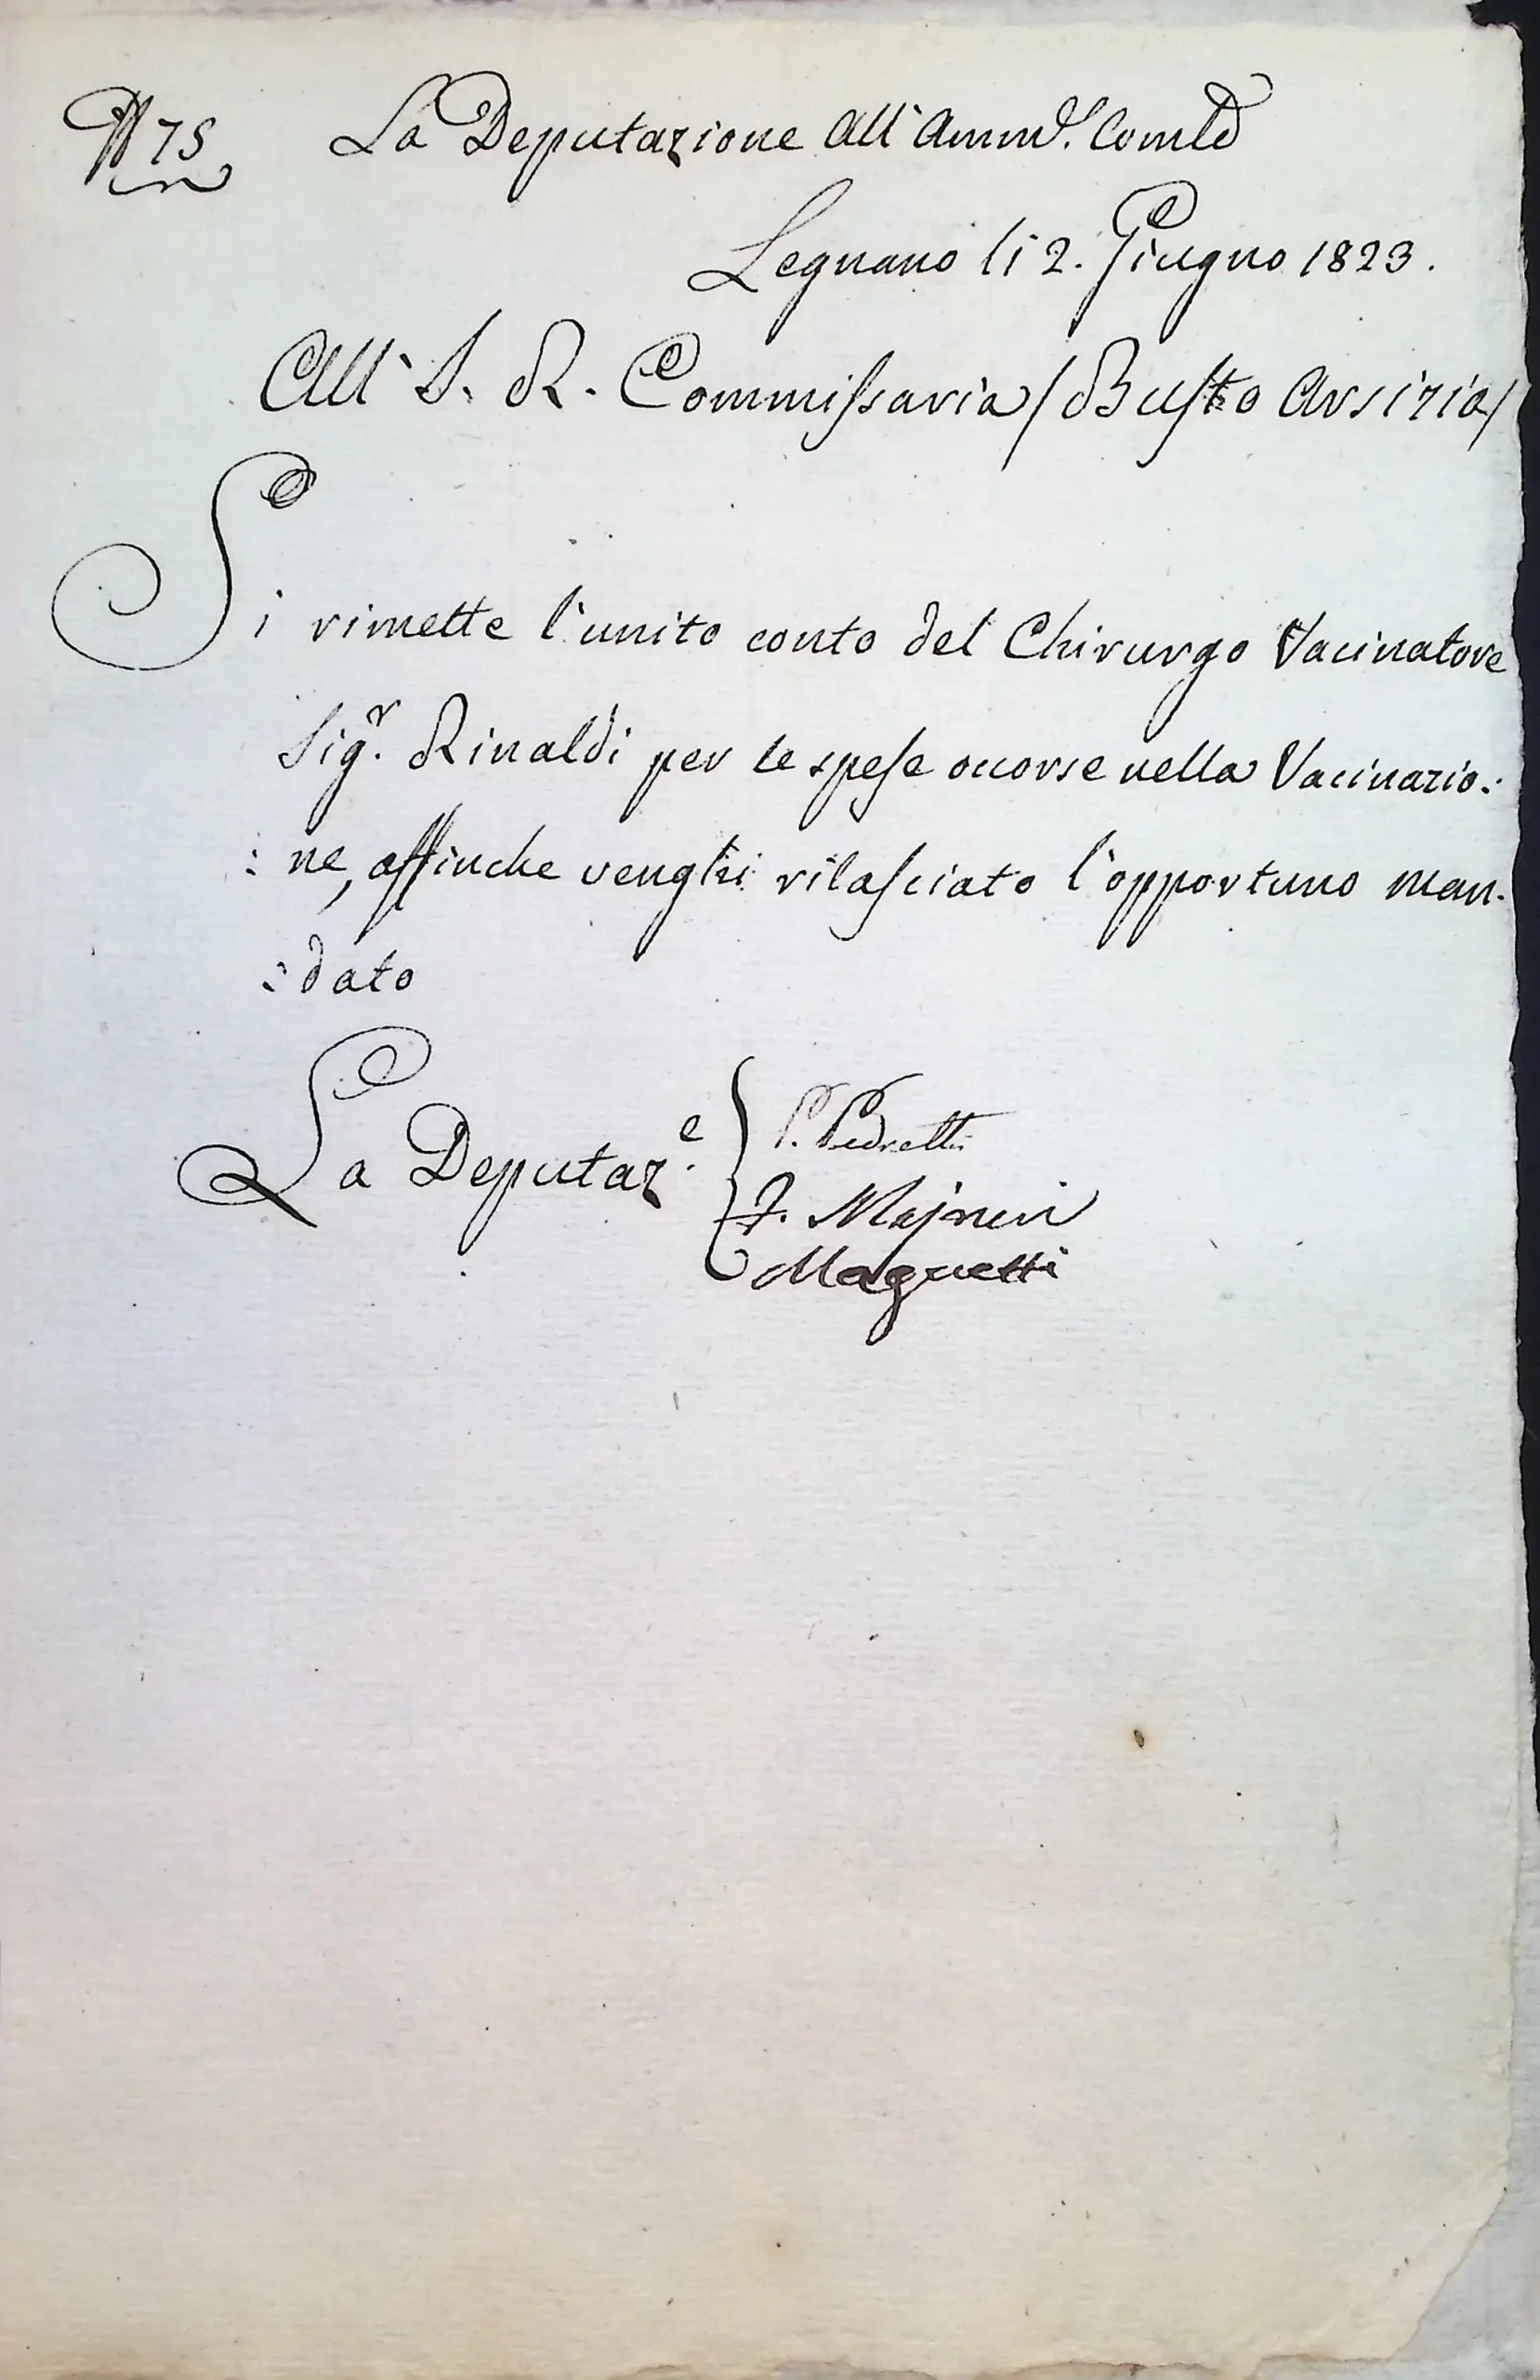 N 75 La Deputazione All' Ammi. Comle
Legnano li 2. Giugno 1823.
All' I. R. Commissaria / Busto Arsizio /
Si rimette l'unito conto del Chirurgo Vacinatore
Sigr. Rinaldi per le spese occorse nella Vacinazio:
: ne, affinche venghi rilasciato l'opportuno man.
: dato
La Deputaz.e P. Pedretti
Magnetti